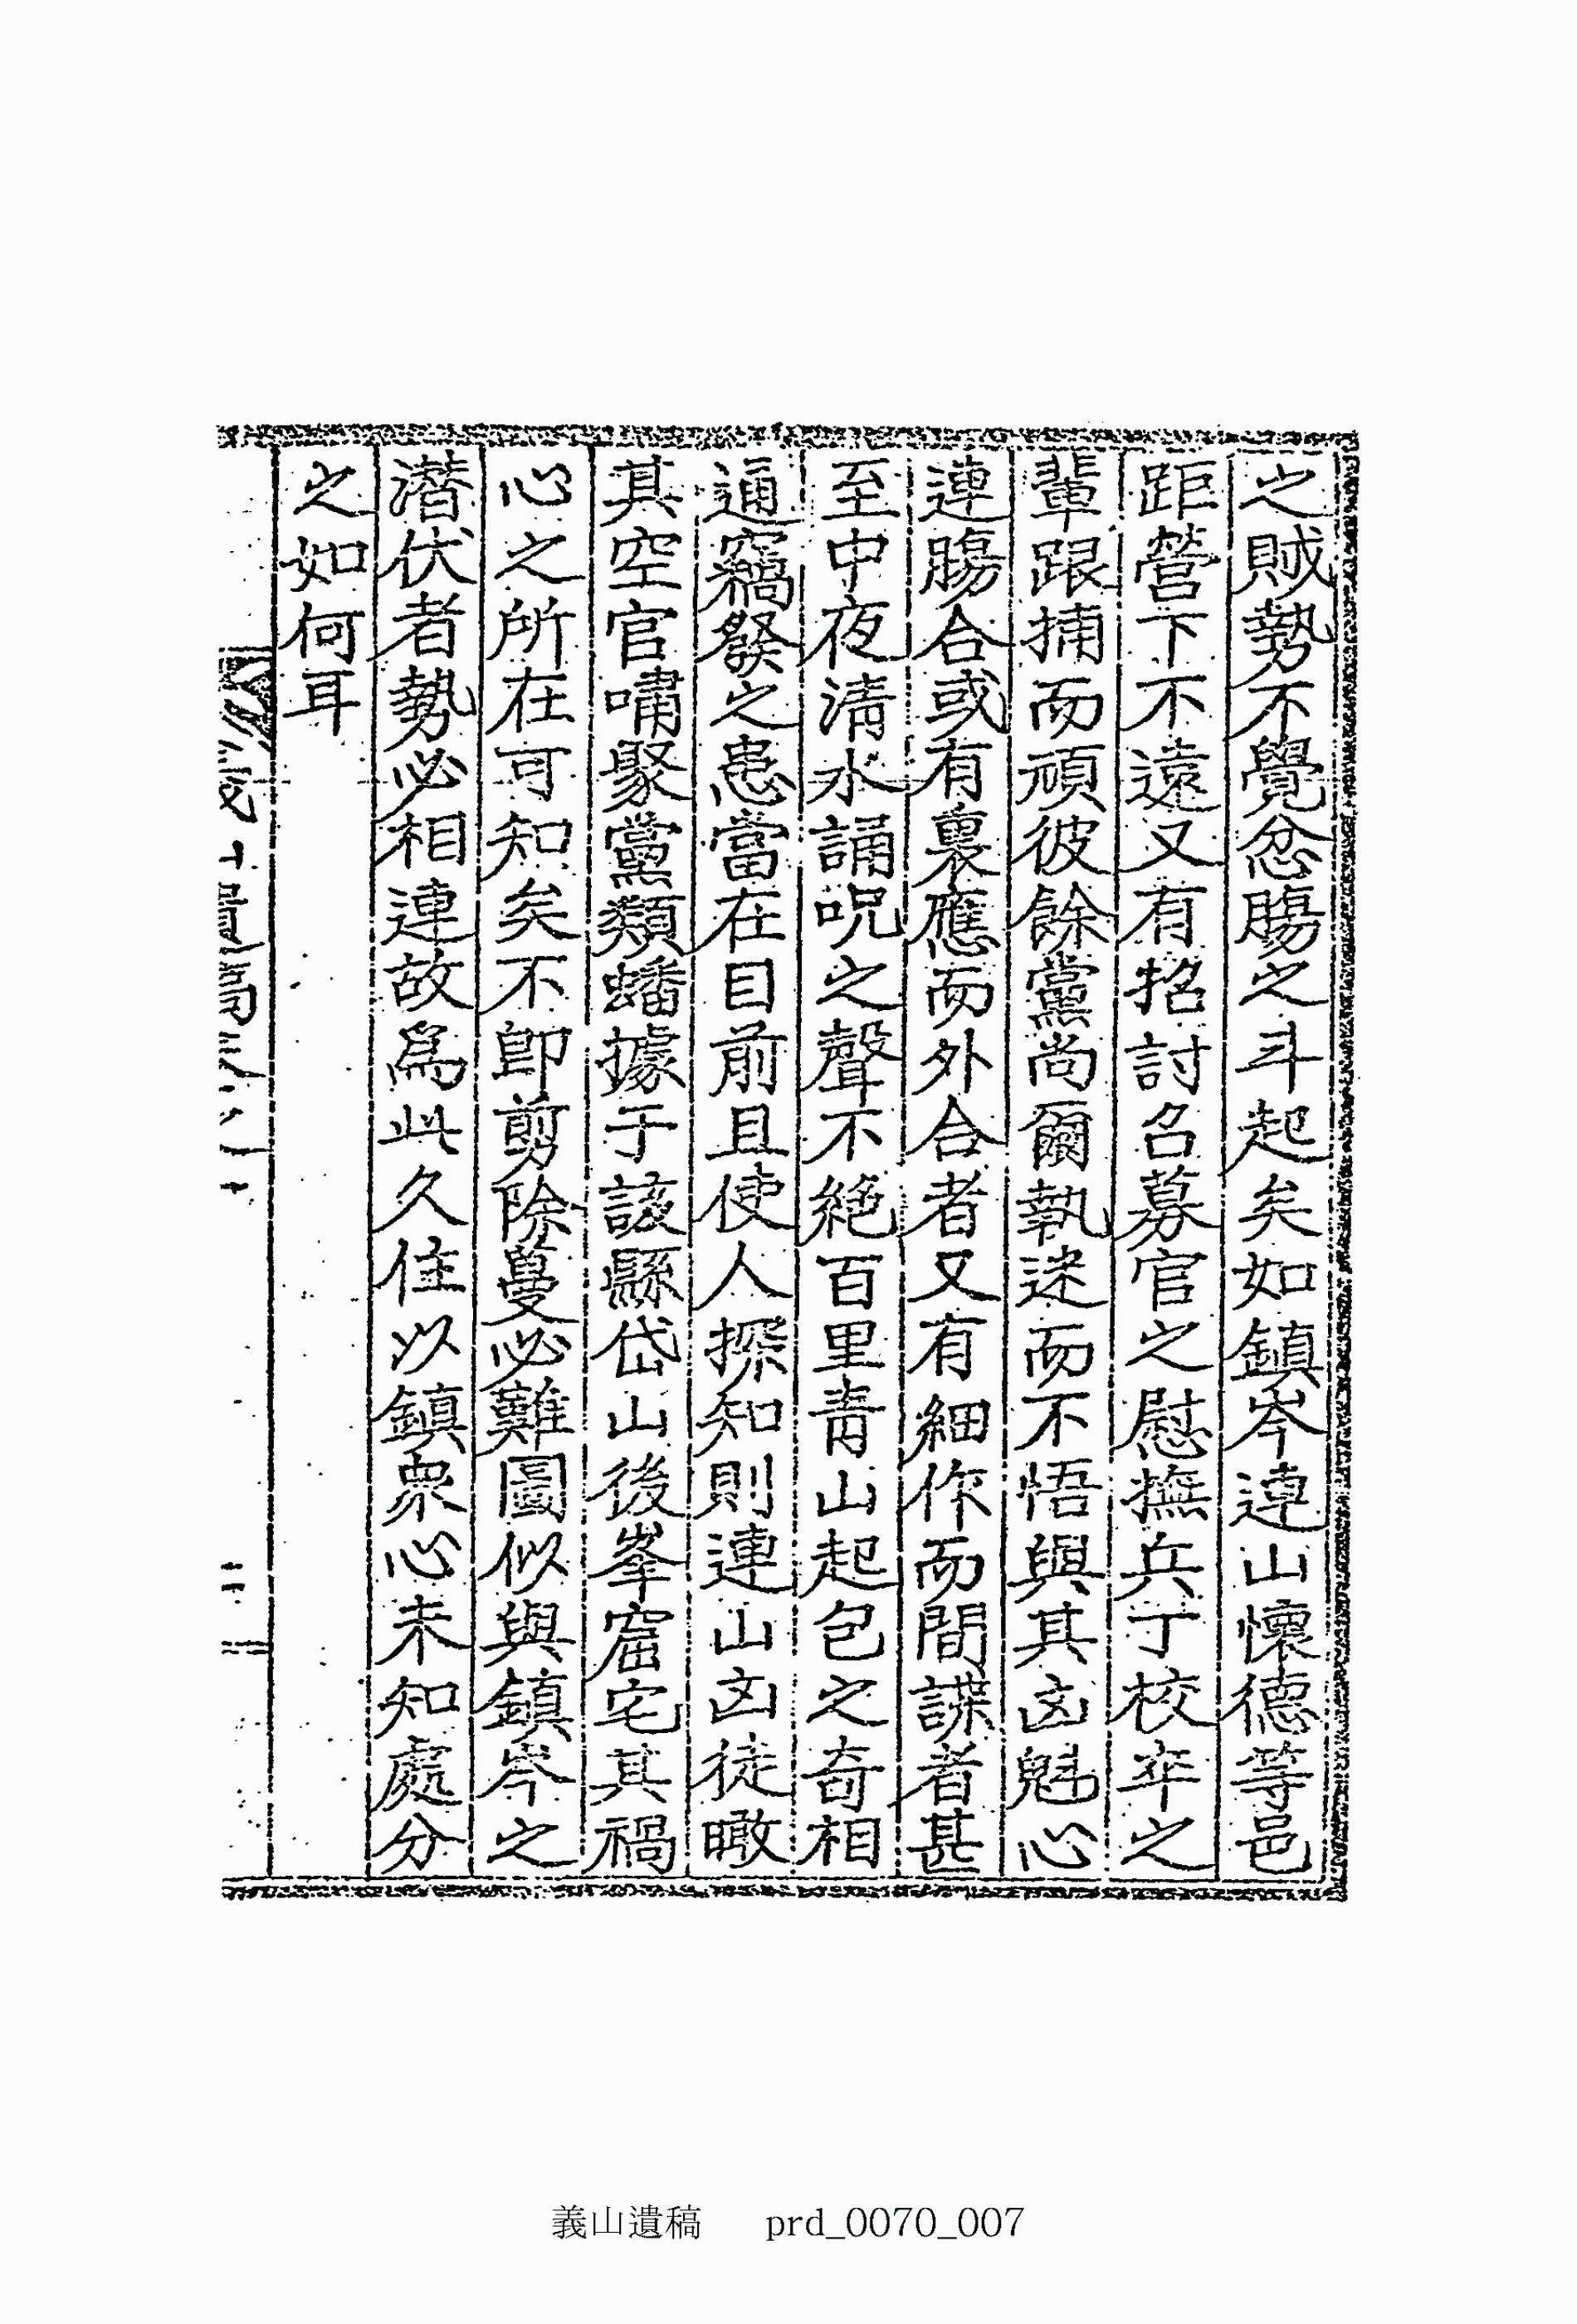 之賊勢不覺忿膓之斗起矣如鎭岑連山懷德等邑
距營下不遠又有招討召募官之慰撫兵丁校卒之
輩跟捕而頑彼餘黨尙爾執迷而不悟與其凶魁心
連膓合或有裏應而外合者又有細作而間諜者甚
至中夜淸水誦呪之聲不絶百里靑山起包之奇相
逼竊發之患當在目前且使人探知則連山凶徒瞰
其空官嘯聚黨類蟠據于該縣岱山後峯窟宅其禍
心之所在可知矣不卽剪除蔓必難圖似與鎭岑之
潛伏者勢必相連故爲此久住以鎭衆心未知處分
之如何耳
義山遺稿 prd_0070_007